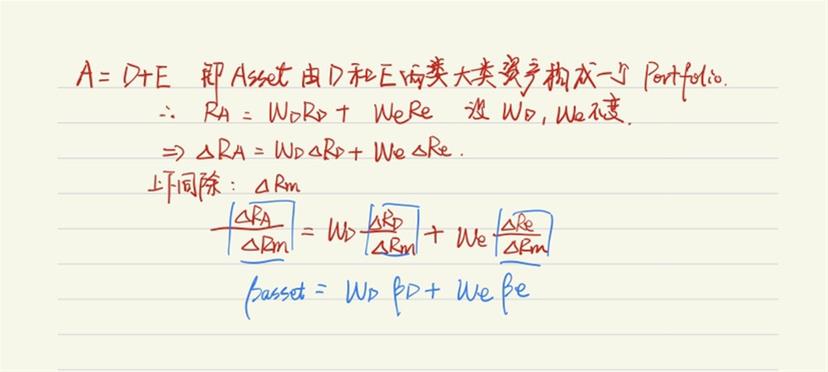 A = D+E 即 Asset 由 D 和 E 两类大类资产构成一个 Portfolio.
∴ RA = WDRD + WeRe 设 WD, We不变.
⇒ △RA = WD△RD + We△Re.
上下同除: △Rm
△RA/△Rm = WD △RD/△Rm + We △Re/△Rm
βasset = WD βD + We βe